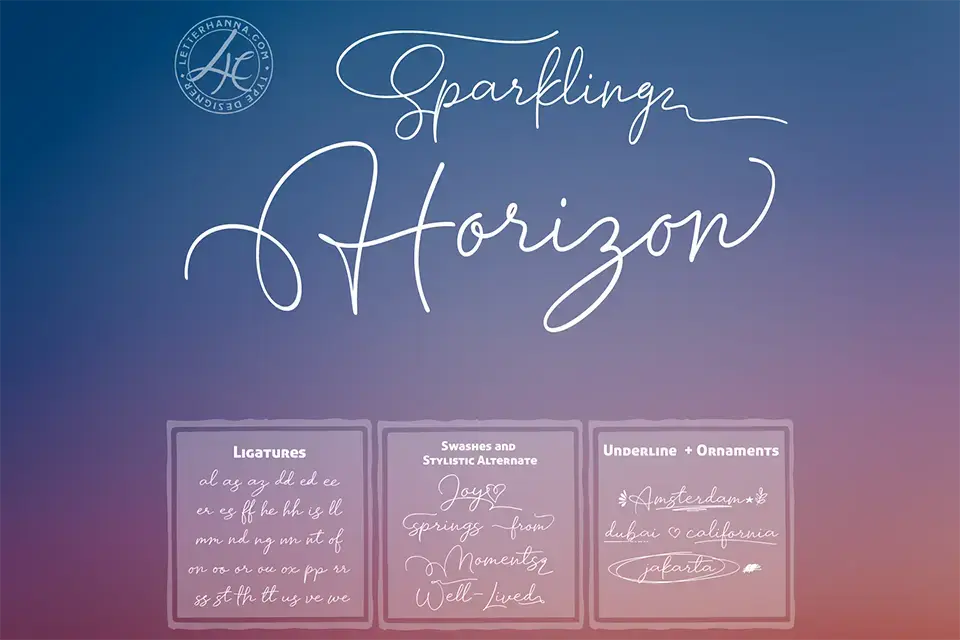 LETTERHANNA.COM
LH
TYPE DESIGNER
Sparkling
Horizon
LIGATURES
al as az dd ed ee
er es ff he hh is ll
mm nd ng nn nt of
on oo or ou ox pp rr
ss st th tt us ve we
SWASHES AND
STYLISTIC ALTERNATE
Joy
springs from
Moments
Well-Lived
UNDERLINE + ORNAMENTS
Amsterdam
dubai california
jakarta